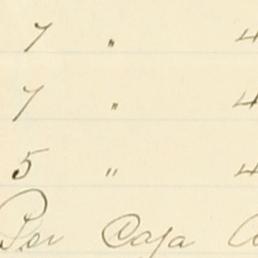 7 " 4
7 " 4
5 " 4
Per Caja